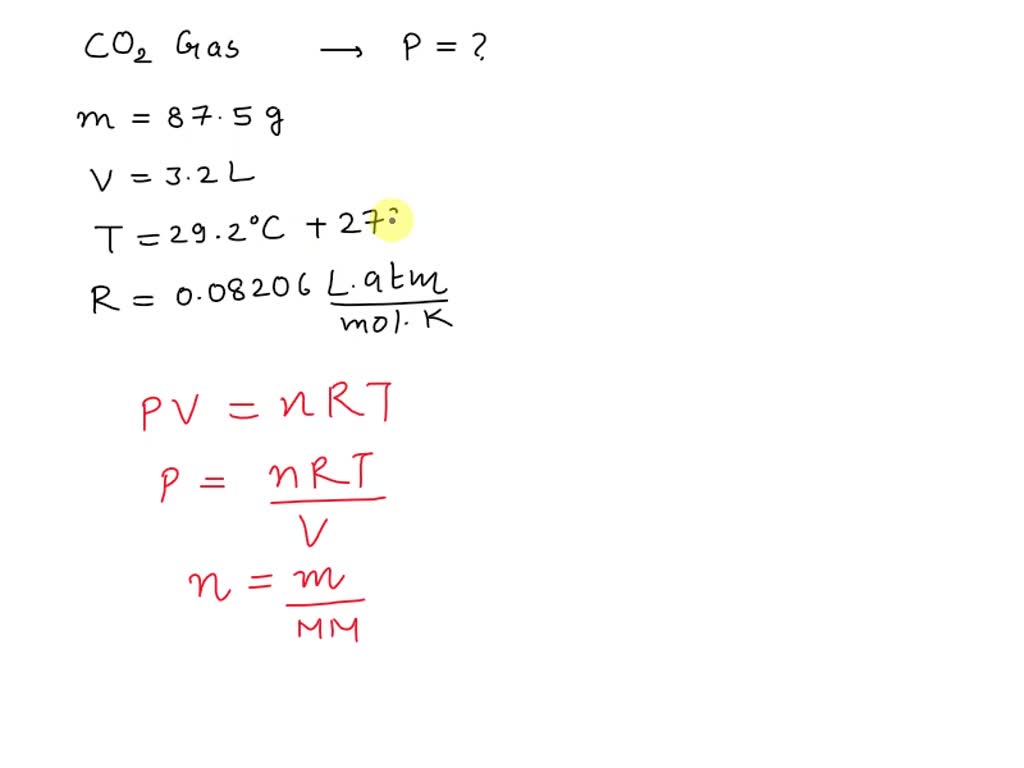 CO₂ Gas → P = ?
m = 87.5 g
V = 3.2 L
T = 29.2°C + 27
R = 0.08206 L.atm / mol.K
PV = nRT
P = nRT / V
n = m / MM